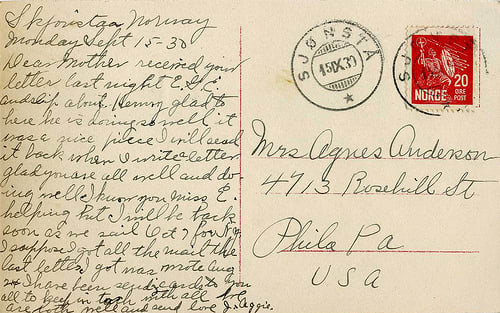 Skjonstaa Norway
Monday Sept 15-30
Dear Mother received your
letter last night E. & E.
and slip about Henry glad to
hear he is doing so well, it
was a nice piece I will send
it back when I write letter
glad you are all well and do-
ing well. I know you miss E.
helping but I will be back
soon as we sail Oct 7 for N.Y
I suppose I got all the mail the
last letter I got was wrote Aug
I have been sending cards to you
all to keep in touch with all. We
are both well and send love J. & Aggie.
SJØNSTÅ
15 IX 30
20
NORGE ØRE
POST
Mrs Agnes Anderson
4713 Rosehill St
Phila Pa
USA